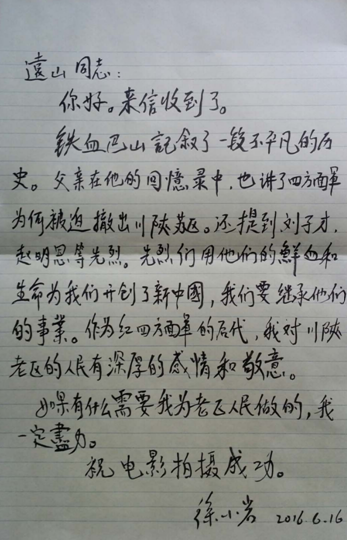 遠山同志：
你好。来信收到了。
铁血巴山記叙了一段不平凡的历
史。父亲在他的回憶录中，也讲了四方面軍
为何被迫撤出川陕苏区。还提到刘子才，
赵明恩等先烈。先烈们用他们的鮮血和
生命为我们开创了新中國，我们要继承他们
的事業。作为红四方面軍的后代，我对川陕
老区的人民有深厚的感情和敬意。
如果有什么需要我为老区人民做的，我
一定盡力。
祝电影拍摄成功。
徐小岩 2016.6.16